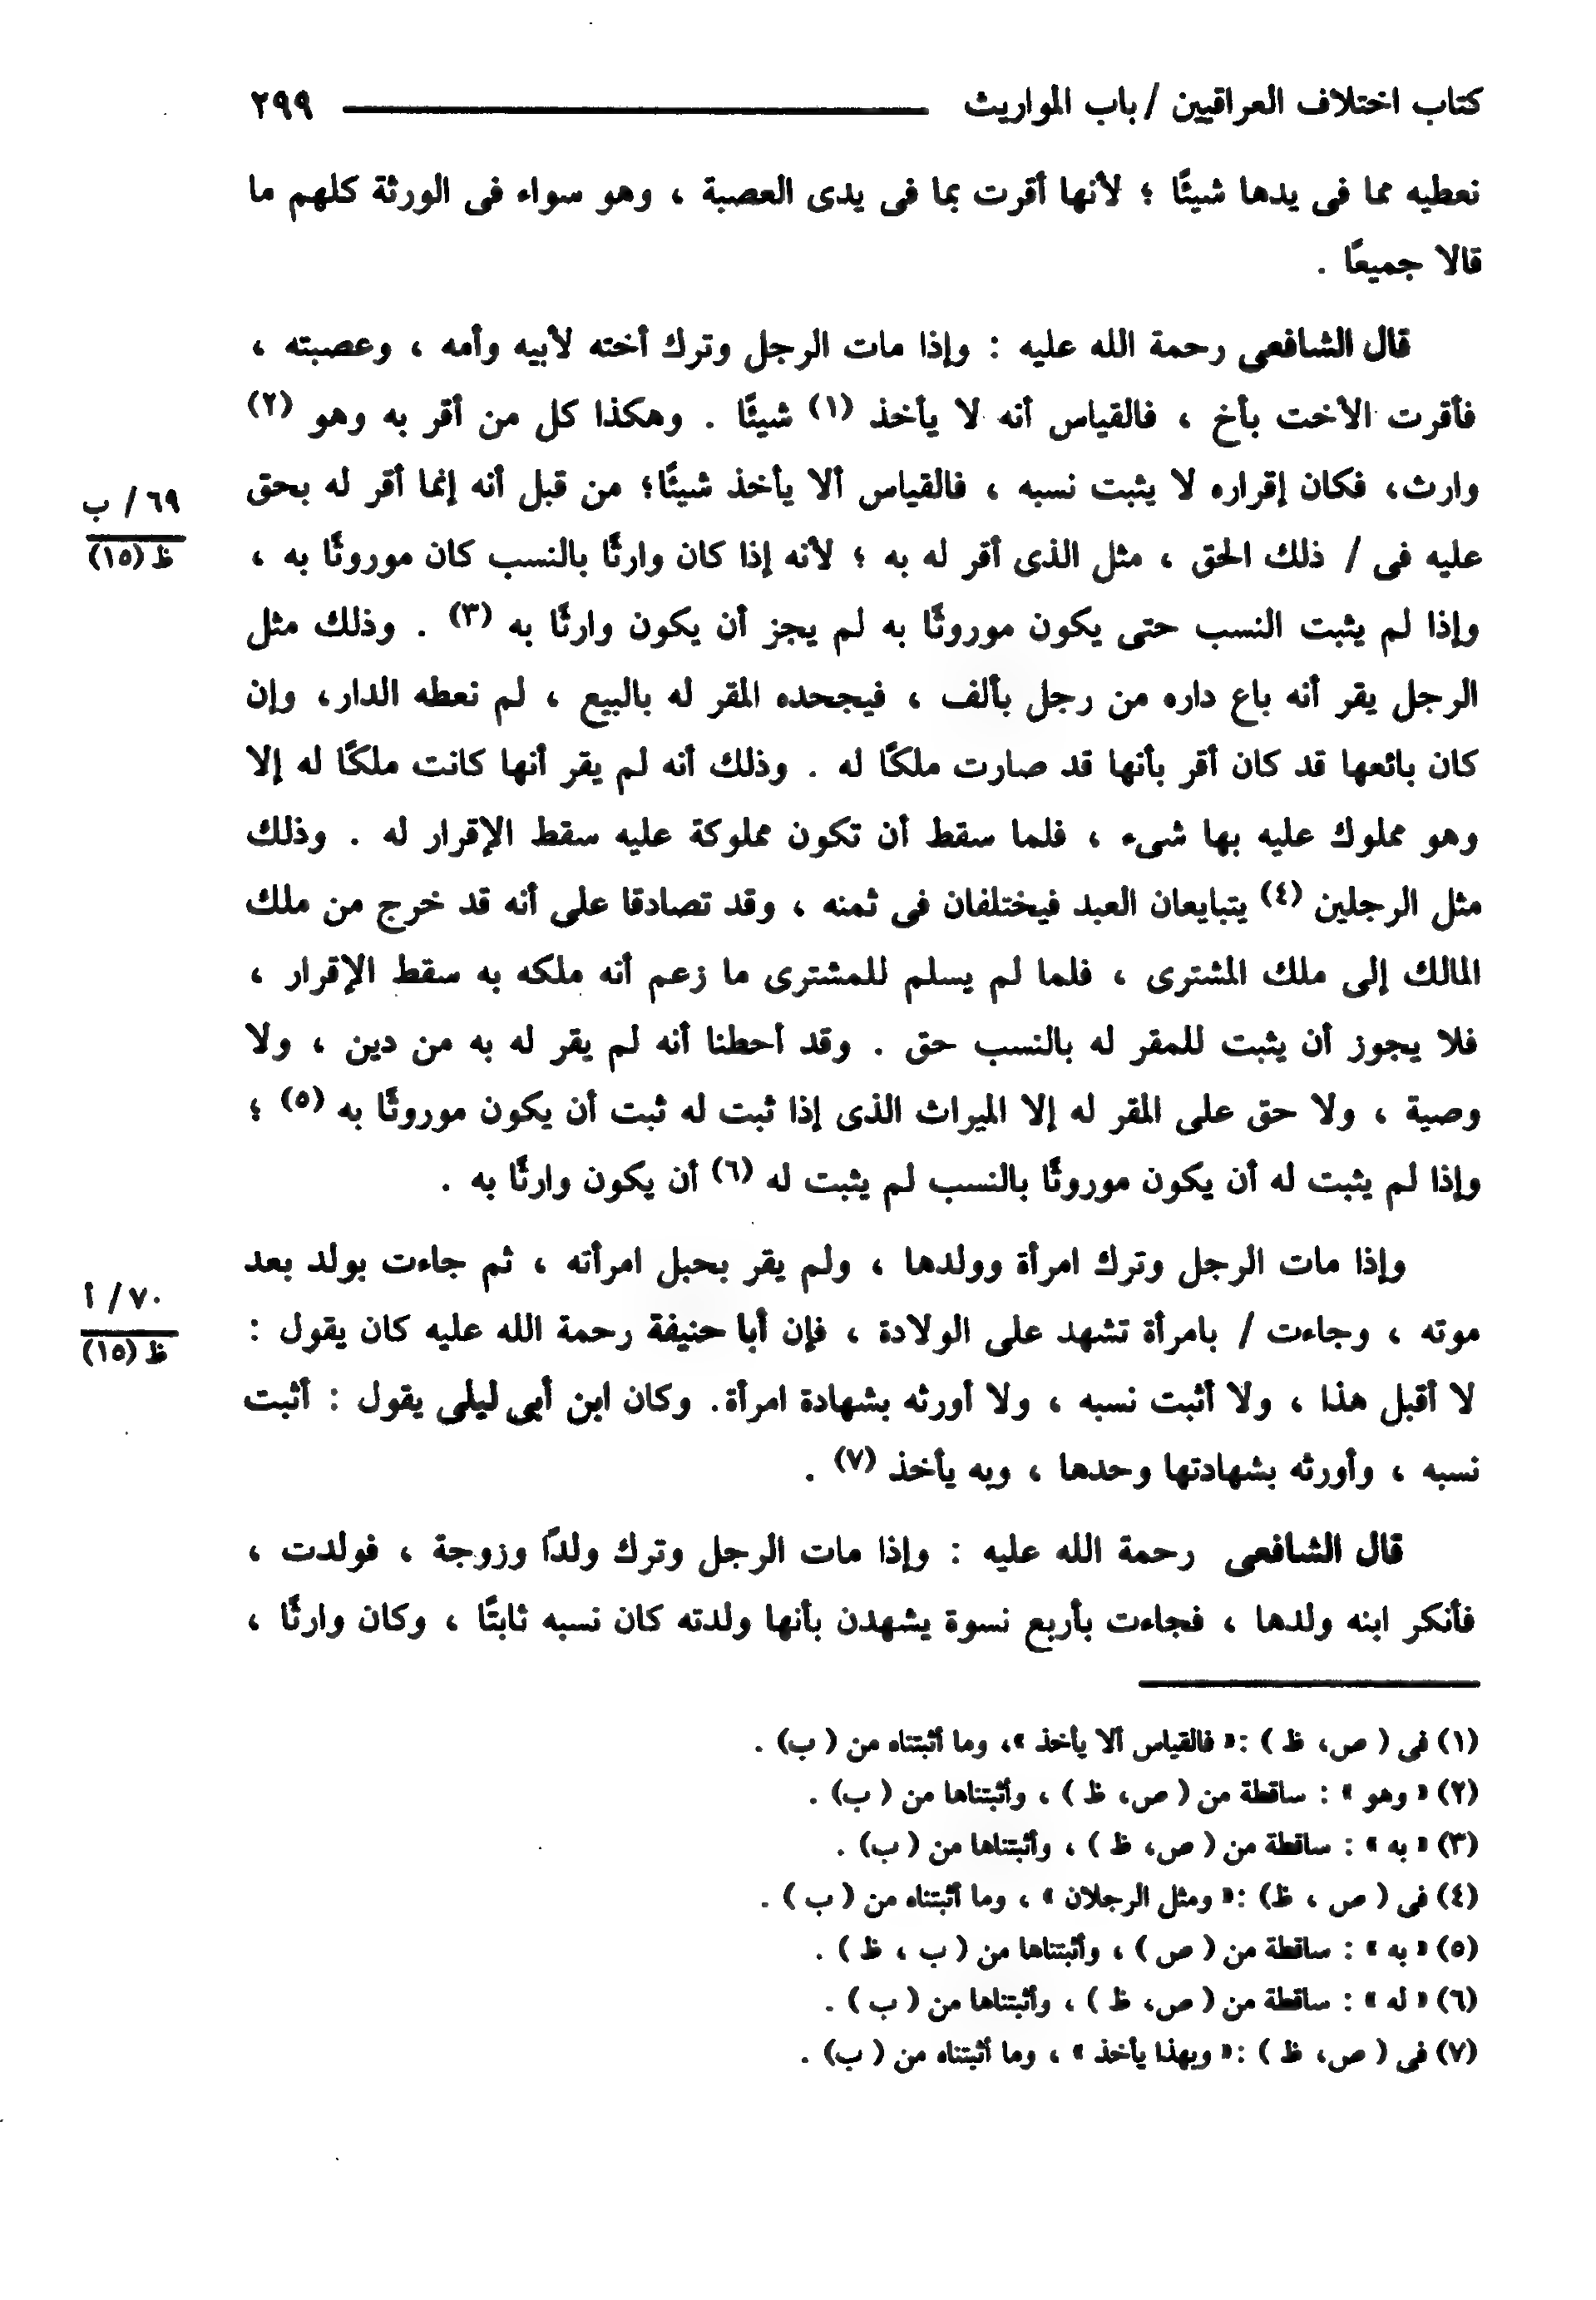 كتاب اختلاف العراقيين / باب المواريث ٢٩٩
نعطيه مما فى يدها شيئًا ؛ لأنها أقرت بما فى يدى العصبة ، وهو سواء فى الورثة كلهم ما
قالا جميعًا .
قال الشافعى رحمة الله عليه : وإذا مات الرجل وترك أخته لأبيه وأمه ، وعصبته ،
فأقرت الأخت بأخ ، فالقياس أنه لا يأخذ (١) شيئًا . وهكذا كل من أقر به وهو (٢)
وارث، فكان إقراره لا يثبت نسبه ، فالقياس ألا يأخذ شيئًا؛ من قبل أنه إنما أقر له بحق
٦٩/ ب
ظ (١٥)
عليه فى / ذلك الحق ، مثل الذى أقر له به ؛ لأنه إذا كان وارثًا بالنسب كان موروثًا به ،
وإذا لم يثبت النسب حتى يكون موروثًا به لم يجز أن يكون وارثًا به (٣) . وذلك مثل
الرجل يقر أنه باع داره من رجل بألف ، فيجحده المقر له بالبيع ، لم نعطه الدار، وإن
كان بائعها قد كان أقر بأنها قد صارت ملكًا له . وذلك أنه لم يقر أنها كانت ملكًا له إلا
وهو مملوك عليه بها شىء ، فلما سقط أن تكون مملوكة عليه سقط الإقرار له . وذلك
مثل الرجلين (٤) يتبايعان العبد فيختلفان فى ثمنه ، وقد تصادقا على أنه قد خرج من ملك
المالك إلى ملك المشترى ، فلما لم يسلم للمشترى ما زعم أنه ملكه به سقط الإقرار ،
فلا يجوز أن يثبت للمقر له بالنسب حق . وقد أحطنا أنه لم يقر له به من دين ، ولا
وصية ، ولا حق على المقر له إلا الميراث الذى إذا ثبت له ثبت أن يكون موروثًا به (٥) ؛
وإذا لم يثبت له أن يكون موروثًا بالنسب لم يثبت له (٦) أن يكون وارثًا به .
وإذا مات الرجل وترك امرأة وولدها ، ولم يقر بحبل امرأته ، ثم جاءت بولد بعد
٧٠/ أ
ظ (١٥)
موته ، وجاءت / بامرأة تشهد على الولادة ، فإن أبا حنيفة رحمة الله عليه كان يقول :
لا أقبل هذا ، ولا أثبت نسبه ، ولا أورثه بشهادة امرأة. وكان ابن أبى ليلى يقول : أثبت
نسبه ، وأورثه بشهادتها وحدها ، وبه يأخذ (٧) .
قال الشافعى رحمة الله عليه : وإذا مات الرجل وترك ولدًا وزوجة ، فولدت ،
فأنكر ابنه ولدها ، فجاءت بأربع نسوة يشهدن بأنها ولدته كان نسبه ثابتًا ، وكان وارثًا ،
(١) فى ( ص، ظ ) :« فالقياس ألا يأخذ »، وما أثبتناه من ( ب) .
(٢) « وهو » : ساقطة من ( ص، ظ ) ، وأثبتناها من ( ب) .
(٣) « به » : ساقطة من ( ص، ظ ) ، وأثبتناها من ( ب) .
(٤) فى ( ص ، ظ) :« ومثل الرجلان » ، وما أثبتناه من ( ب ) .
(٥) « به » : ساقطة من ( ص ) ، وأثبتناها من ( ب ، ظ ) .
(٦) « له » : ساقطة من ( ص، ظ ) ، وأثبتناها من ( ب ) .
(٧) فى ( ص، ظ ) :« وبهذا يأخذ » ، وما أثبتناه من ( ب) .